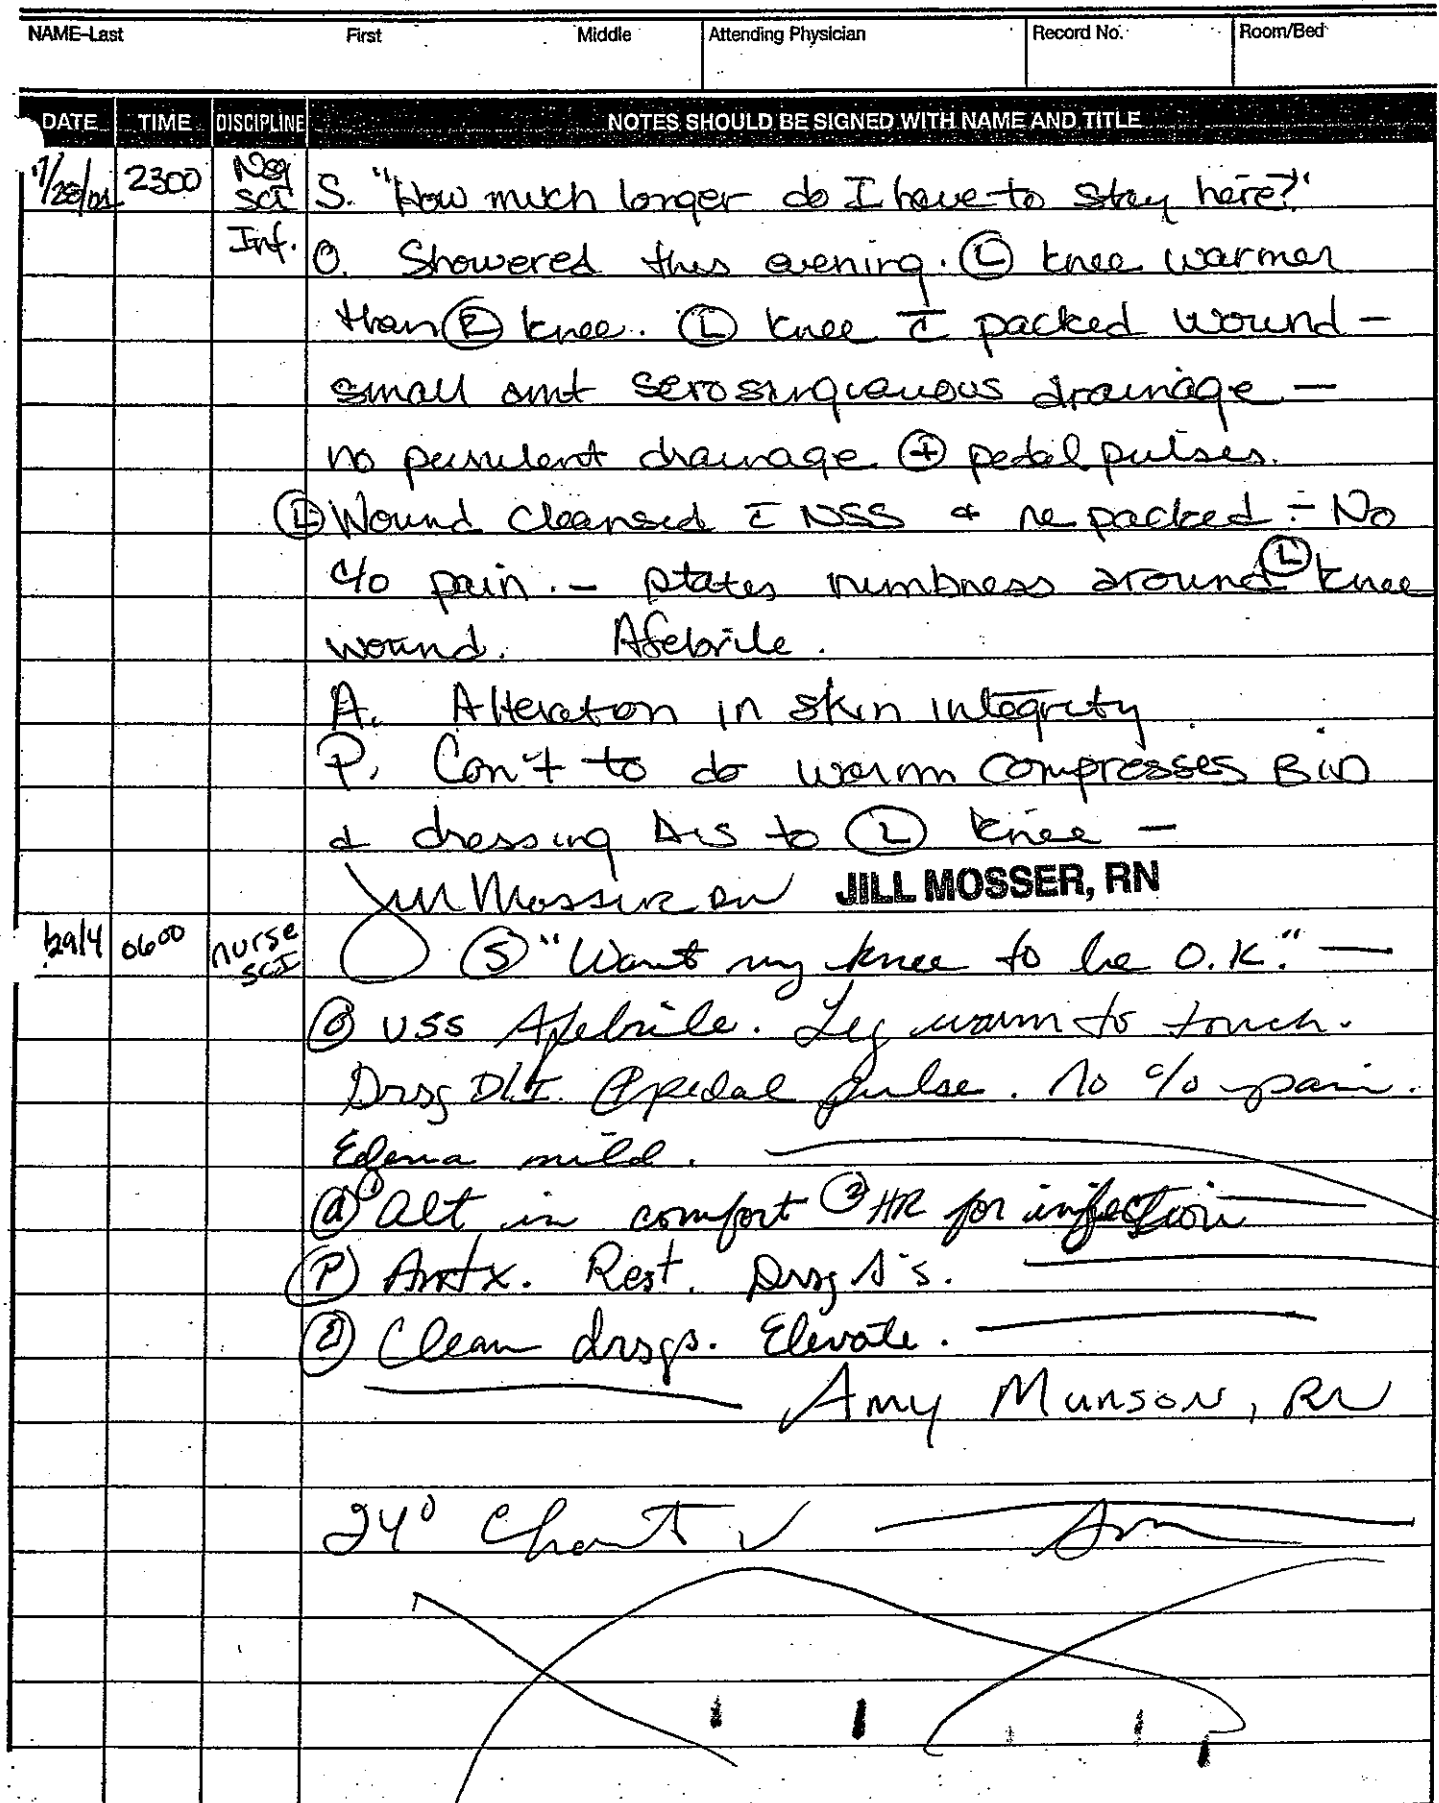 NAME-Last First Middle Attending Physician Record No. Room/Bed
DATE TIME DISCIPLINE NOTES SHOULD BE SIGNED WITH NAME AND TITLE
2300 S. "How much longer do I have to stay here?"
SCI
Inf. O. Showered this evening. Ⓛ knee warmer
than Ⓡ knee. Ⓛ knee c̅ packed wound -
small amt serosinguanous drainage -
no purulent drainage ⊕ pedal pulses.
Ⓛ Wound cleansed c̅ NSS & repacked - No
c/o pain. - states numbness around Ⓛ knee
wound. Afebrile.
A. Alteration in skin integrity
P. Con't to do warm compresses BID
& dressing Δ's to Ⓛ knee -
Jill Mosser RN JILL MOSSER, RN
0600 nurse SCI Ⓢ "Want my knee to be O.K." -
Ⓞ VSS Afebrile. Leg warm to touch.
Drsg D/I. ⊕ pedal pulse. No c/o pain.
Edema mild.
Ⓐ ① alt in comfort ② HR for infection
Ⓟ Rest. Drsg Δ's.
Ⓔ Clean drsgs. Elevate.
Amy Munson, RN
24° Chart ✓